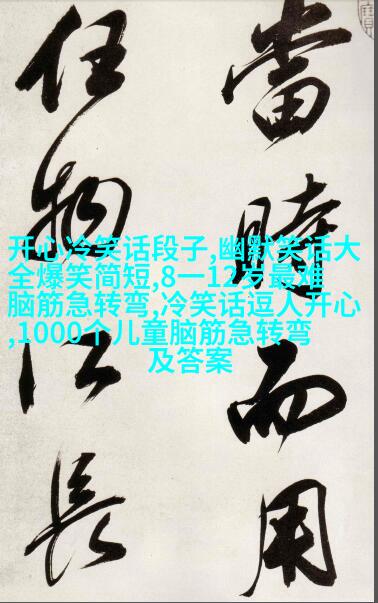 當睦而用
任物以長
开心冷笑话段子,幽默笑话大
全爆笑简短,8一12岁最难
脑筋急转弯,冷笑话逗人开心
,1000个儿童脑筋急转弯
及答案